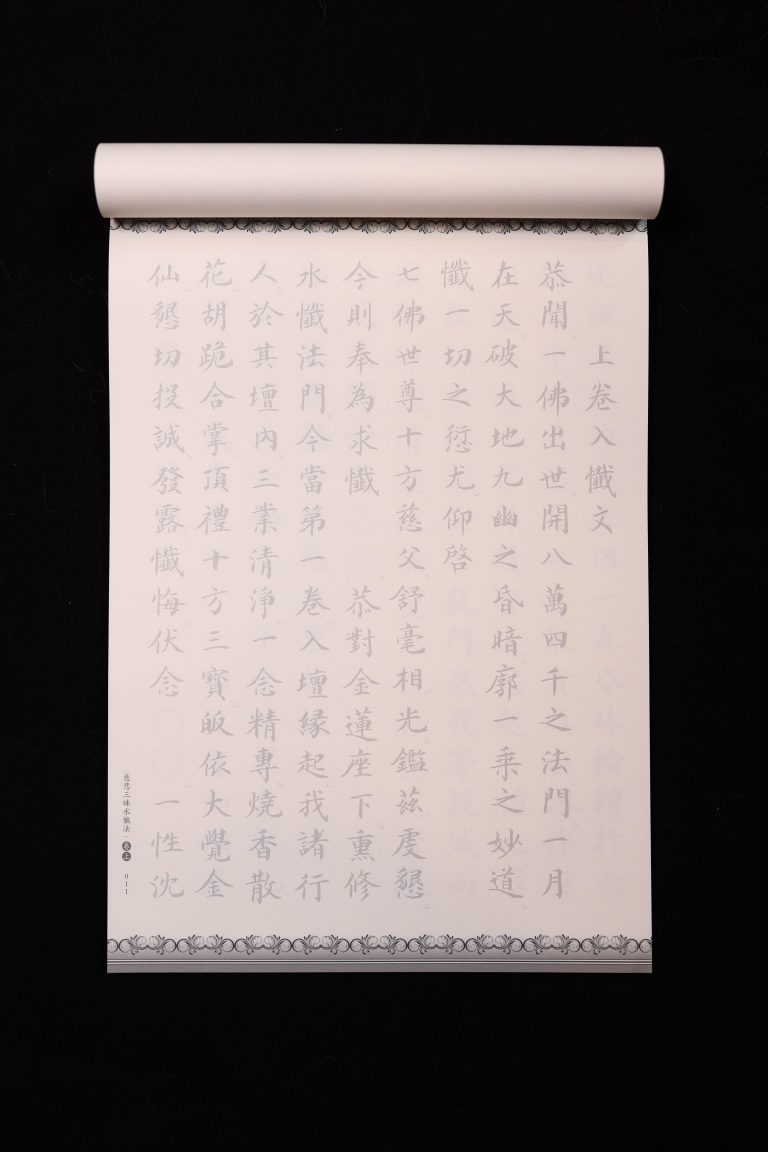 上卷入懺文
恭聞。一佛出世。開八萬四千之法門。一月
在天。破大地九幽之昏暗。廓一乘之妙道。
懺一切之愆尤。仰啓
七佛世尊。十方慈父。舒毫相光。鑑茲虔懇。
今則奉為求懺〇〇。恭對金蓮座下。熏修
水懺法門。今當第一卷。入壇緣起。我諸行
人。於其壇內。三業清淨。一念精專。燒香散
花。胡跪合掌。頂禮十方三寶。皈依大覺金
仙。懇切投誠。發露懺悔。伏念〇〇。一性沈
·慈悲三昧水懺法· 卷上 011